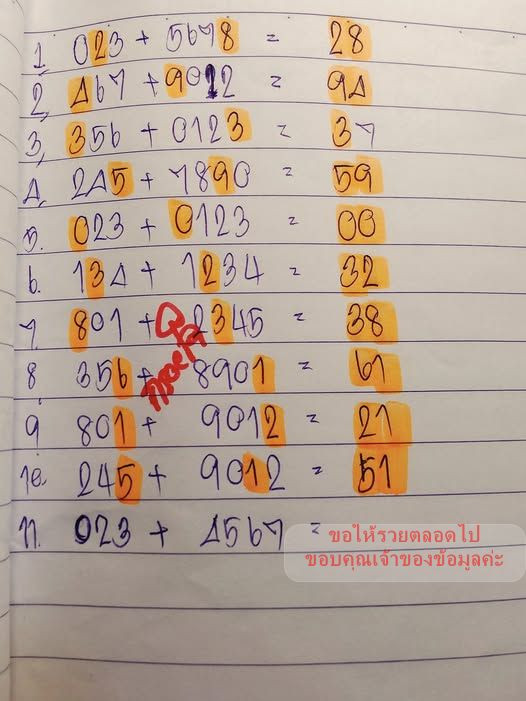 1. 023 + 5678 = 28
2, 467 + 9012 = 94
3, 356 + 0123 = 37
4, 245 + 7890 = 59
5. 023 + 0123 = 00
6. 134 + 1234 = 32
7 801 + 2345 = 38
8 356 + 8901 = 61
9 801 + 9012 = 21
10. 245 + 9012 = 51
11. 023 + 4567 =
ขอให้รวยตลอดไป
ขอบคุณเจ้าของข้อมูลค่ะ